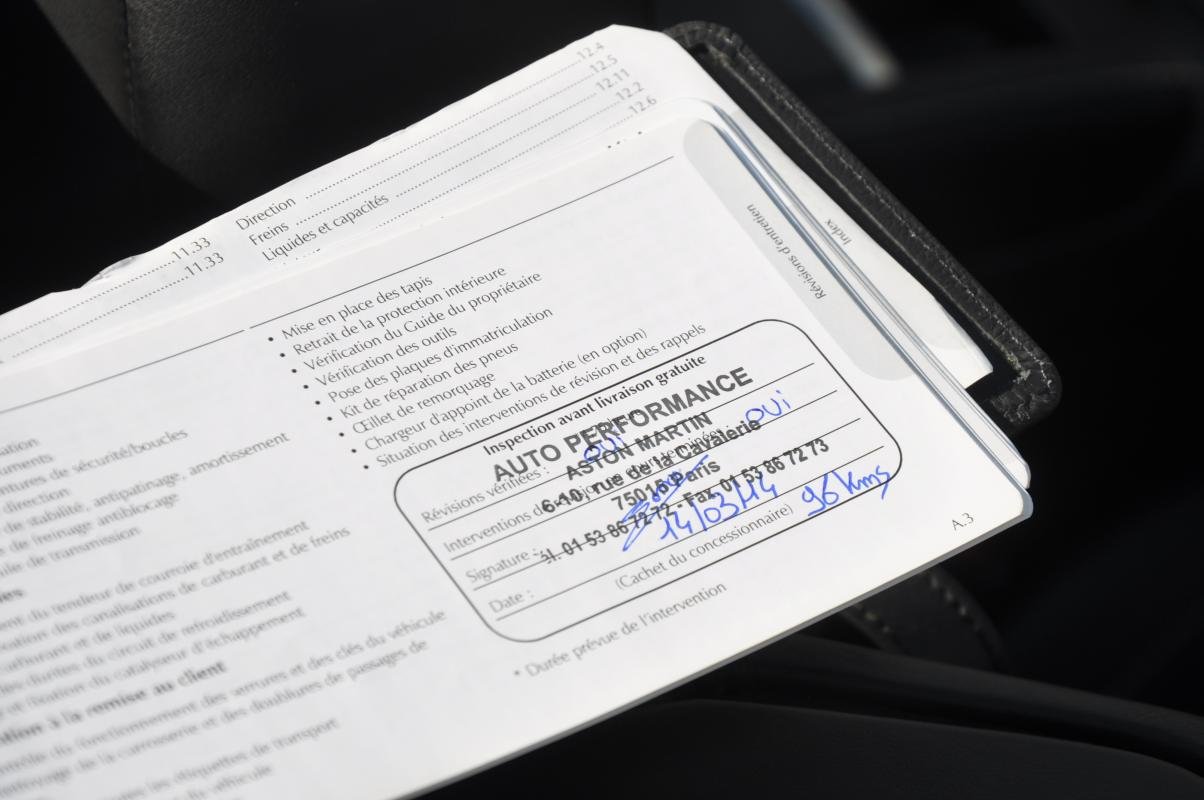 12.4
12.5
12.11
12.2
12.6
Direction
Freins
Liquides et capacités
11.33
11.33
Index
Révisions d'entretien
• Mise en place des tapis
• Retrait de la protection intérieure
• Vérification du Guide du propriétaire
• Vérification des outils
• Pose des plaques d'immatriculation
• Kit de réparation des pneus
• Œillet de remorquage
• Chargeur d'appoint de la batterie (en option)
• Situation des interventions de révision et des rappels
Inspection avant livraison gratuite
AUTO PERFORMANCE
ASTON MARTIN
6-10, rue de la Cavalerie
75015 Paris
01 53 86 72 72 - Fax 01 53 86 72 73
Révisions vérifiées : OUI
Interventions OUI
Signature :
Date : 14/03/14 96 Kms
(Cachet du concessionnaire)
* Durée prévue de l'intervention
A.3
de sécurité/boucles
direction
de stabilité, antipatinage, amortissement
de freinage antiblocage
de transmission
du tendeur de courroie d'entraînement
des canalisations de carburant et de freins
carburant et de liquides
durites du circuit de refroidissement
et fixation du catalyseur d'échappement
à la remise au client
du fonctionnement des serrures et des clés du véhicule
de la carrosserie et des doublures de passages de
les étiquettes de transport
du véhicule